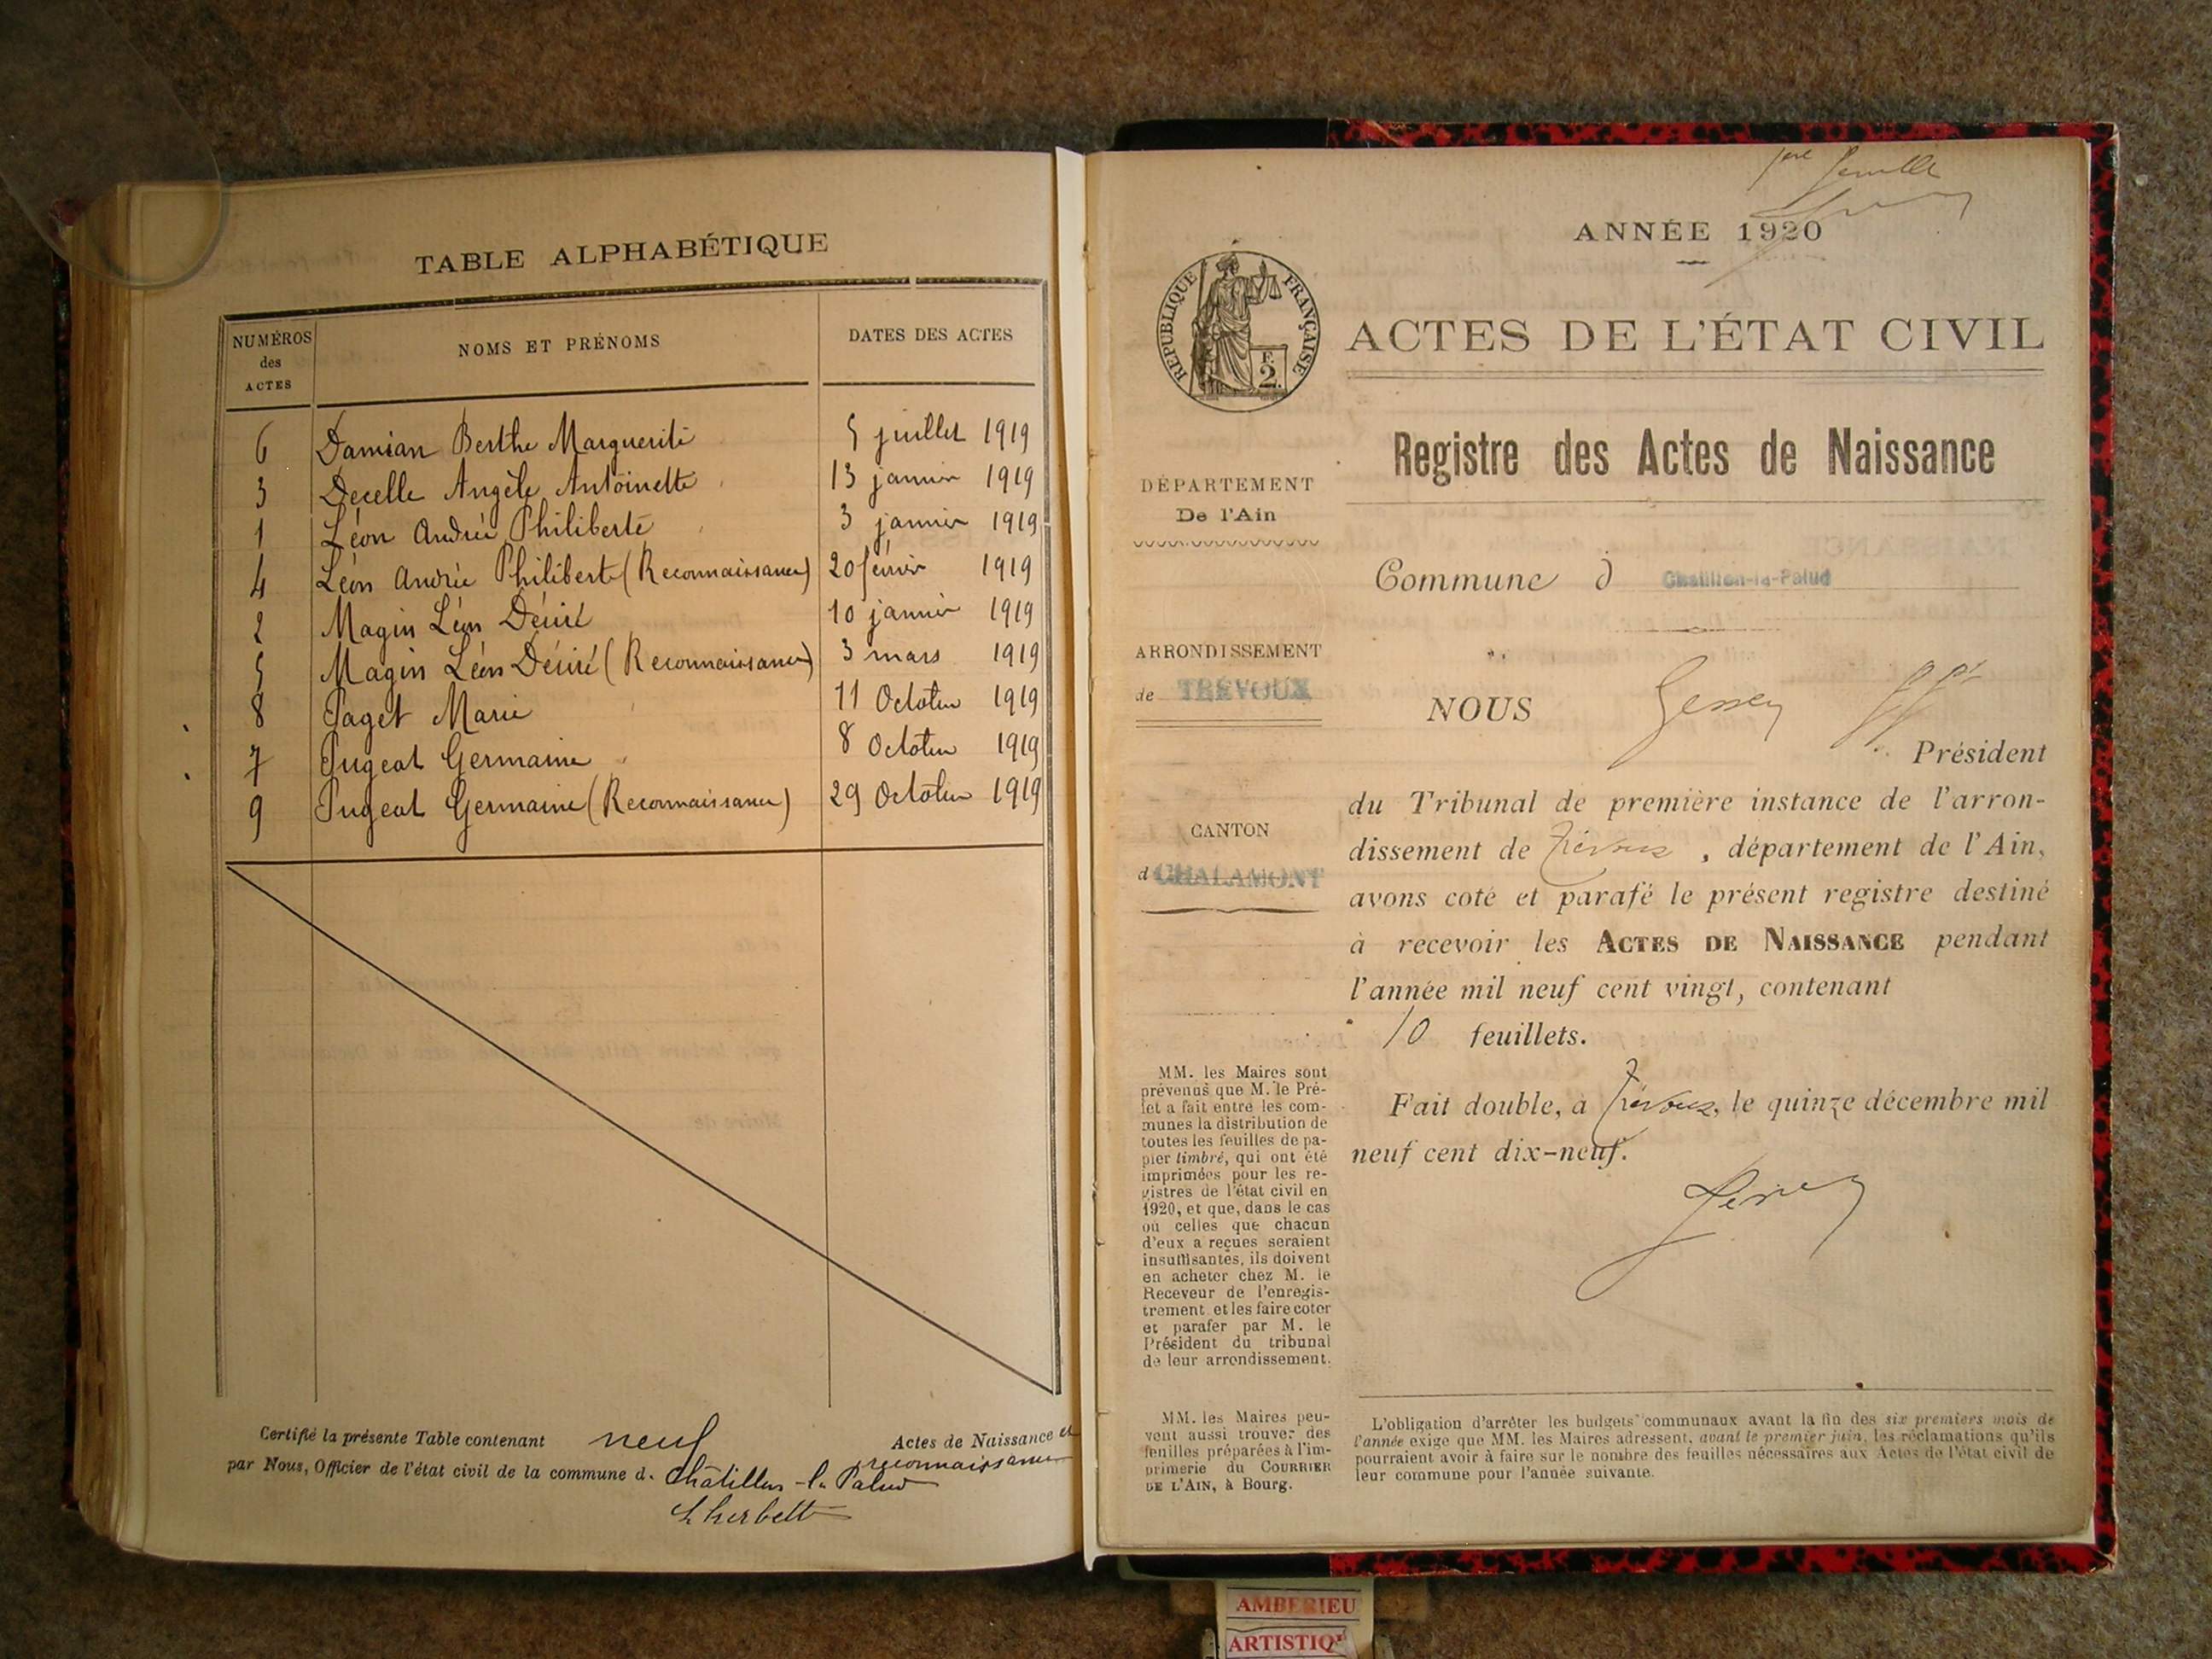 TABLE ALPHABÉTIQUE
NUMÉROS des ACTES NOMS ET PRÉNOMS DATES DES ACTES
6 Damian Berthe Marguerite 5 juillet 1919
3 Decelle Angèle Antoinette 13 janvier 1919
1 Léon Andrée Philiberte 3 janvier 1919
4 Léon Andrée Philiberte (Reconnaissance) 20 février 1919
2 Magin Léon Désiré 10 janvier 1919
5 Magin Léon Désiré (Reconnaissance) 3 mars 1919
8 Paget Marie 11 Octobre 1919
7 Pugeat Germaine 8 Octobre 1919
9 Pugeat Germaine (Reconnaissance) 29 Octobre 1919
Certifié la présente Table contenant neuf Actes de Naissance et reconnaissance
par Nous, Officier de l'état civil de la commune d. Châtillon-la-Palud
Lherbett
1er feuillet
ANNÉE 1920
RÉPUBLIQUE FRANÇAISE
F.
2.
ACTES DE L'ÉTAT CIVIL
Registre des Actes de Naissance
DÉPARTEMENT
De l'Ain
Commune d Chatillon-la-Palud
ARRONDISSEMENT
de TRÉVOUX
NOUS
Président
du Tribunal de première instance de l'arron-
dissement de Trévoux, département de l'Ain,
avons coté et parafé le présent registre destiné
à recevoir les ACTES DE NAISSANCE pendant
l'année mil neuf cent vingt, contenant
10 feuillets.
Fait double, à Trévoux, le quinze décembre mil
neuf cent dix-neuf.
CANTON
d CHALAMONT
MM. les Maires sont
prévenus que M. le Pré-
fet a fait entre les com-
munes la distribution de
toutes les feuilles de pa-
pier timbré, qui ont été
imprimées pour les re-
gistres de l'état civil en
1920, et que, dans le cas
où celles que chacun
d'eux a reçues seraient
insuffisantes, ils doivent
en acheter chez M. le
Receveur de l'enregis-
trement et les faire coter
et parafer par M. le
Président du tribunal
de leur arrondissement.
MM. les Maires peu-
vent aussi trouver des
feuilles préparées à l'im-
primerie du COURRIER
DE L'AIN, à Bourg.
L'obligation d'arrêter les budgets communaux avant la fin des six premiers mois de
l'année exige que MM. les Maires adressent, avant le premier juin, les réclamations qu'ils
pourraient avoir à faire sur le nombre des feuilles nécessaires aux Actes de l'état civil de
leur commune pour l'année suivante.
AMBERIEU
ARTISTIQ